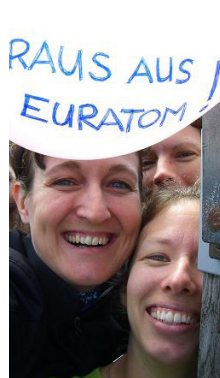 RAUS AUS
EURATOM!